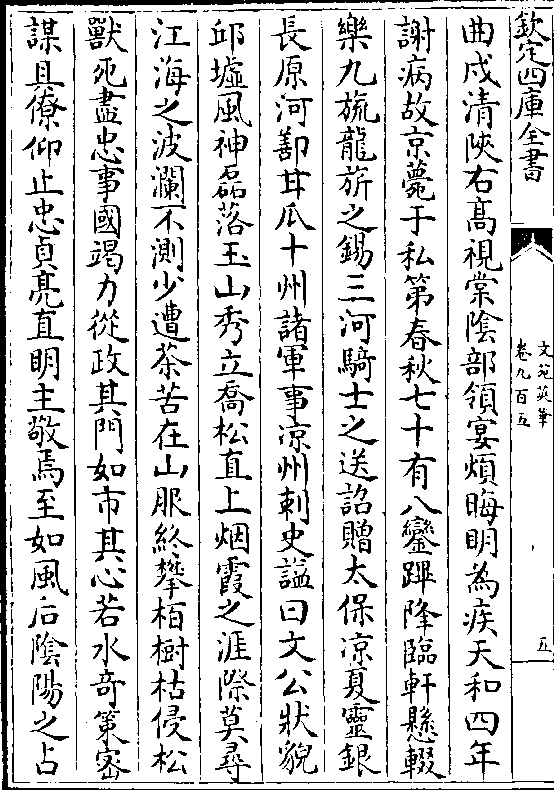 欽定四庫全書
文苑英華
卷九百五
五
曲戍清陜右髙視棠陰部領宴煩晦明為疾天和四年
謝病故京薨于私第春秋七十有八鑾蹕降臨軒懸輟
樂九旒龍旂之錫三河騎士之送詔贈太保凉夏靈銀
長原河鄯甘瓜十州諸軍事凉州刺史謚曰文公狀貌
邱墟風神磊落玉山秀立喬松直上烟霞之涯際莫尋
江海之波瀾不測少遭荼苦在山服終攀栢樹枯侵松
獸死盡忠事國竭力從政其門如市其心若水奇策密
謀具僚仰止忠貞亮直明主敬焉至如風后隂陽之占